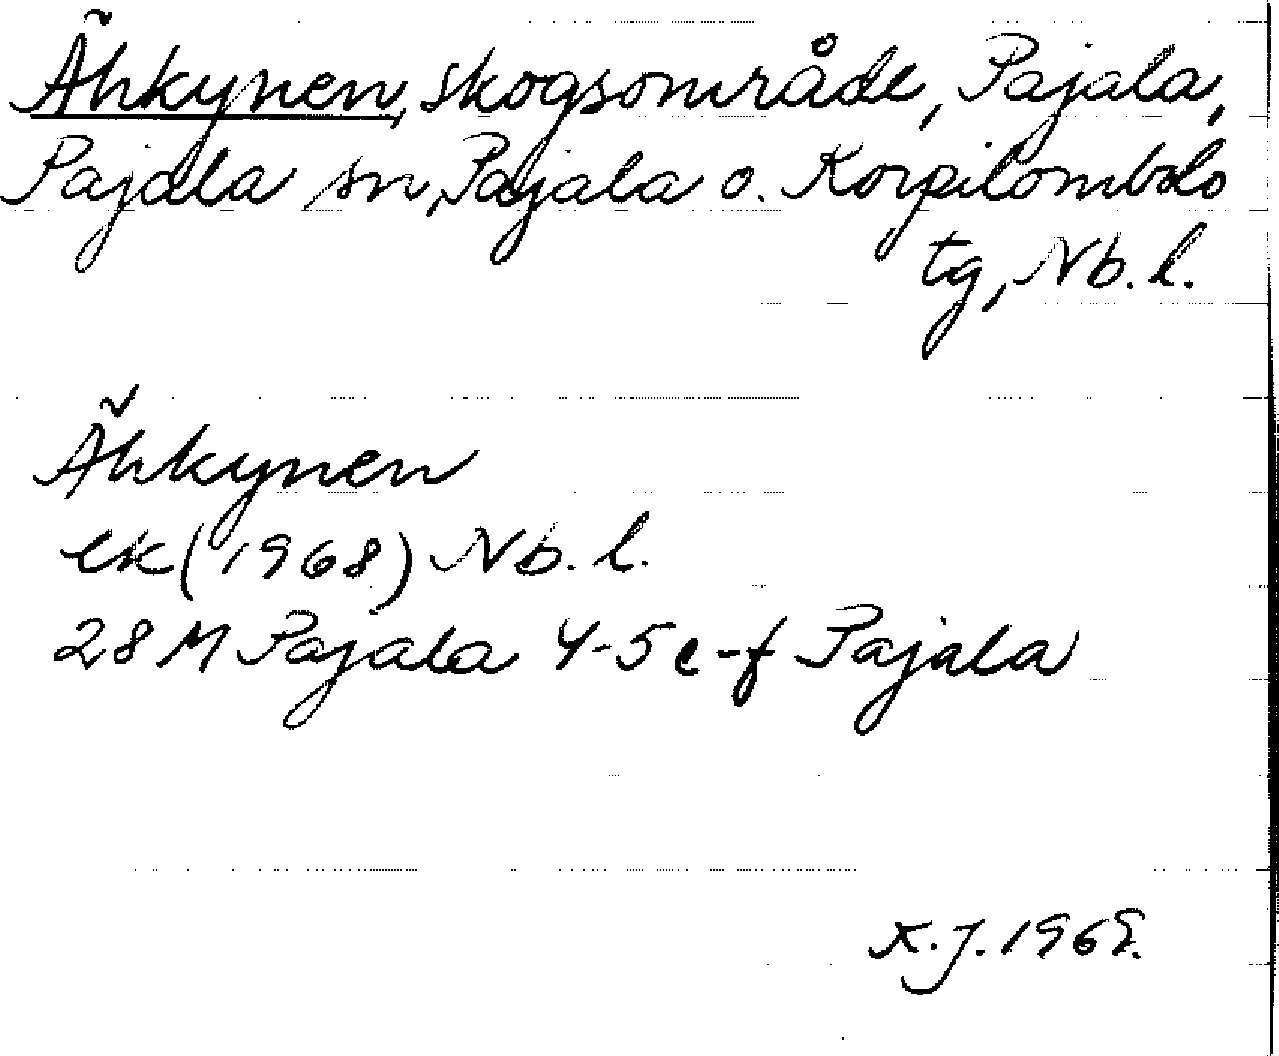 Ähkynen, skogsområde, Pajala,
Pajala sn, Pajala o. Korpilombolo
tg, Nb. l.
Ähkynen
ek (1968) Nb. l.
28 M Pajala 4-5 e-f Pajala
K.J. 1969.